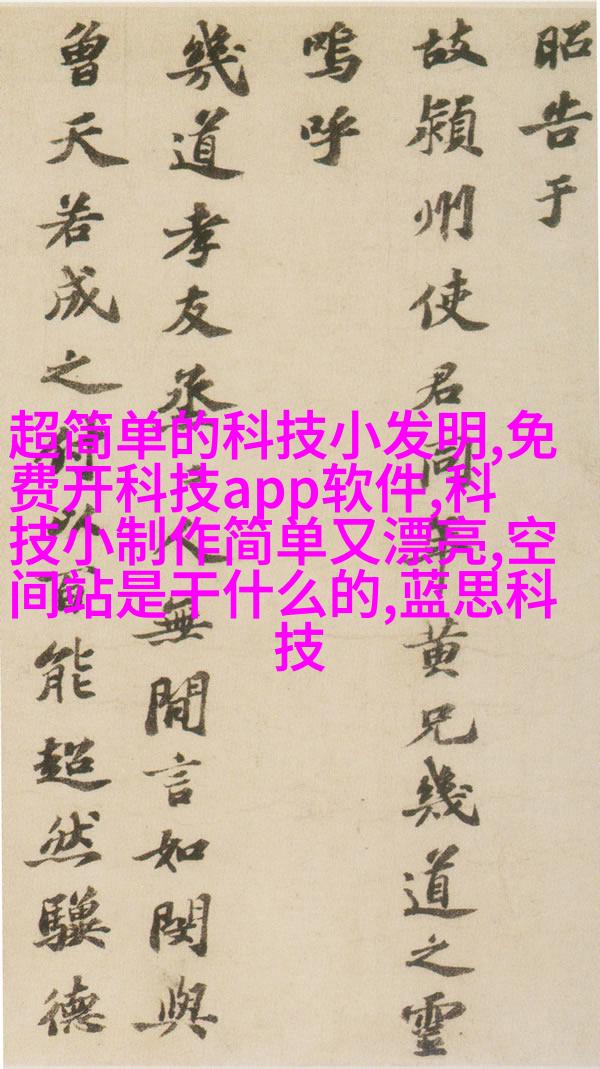 昭告于
故潁州使君同年黄兄幾道之靈
嗚呼
幾道孝友烝人無閒言如閔與
曾天若成之以百能超然驥德
超简单的科技小发明,免
费开科技app软件,科
技小制作简单又漂亮,空
间站是干什么的,蓝思科
技